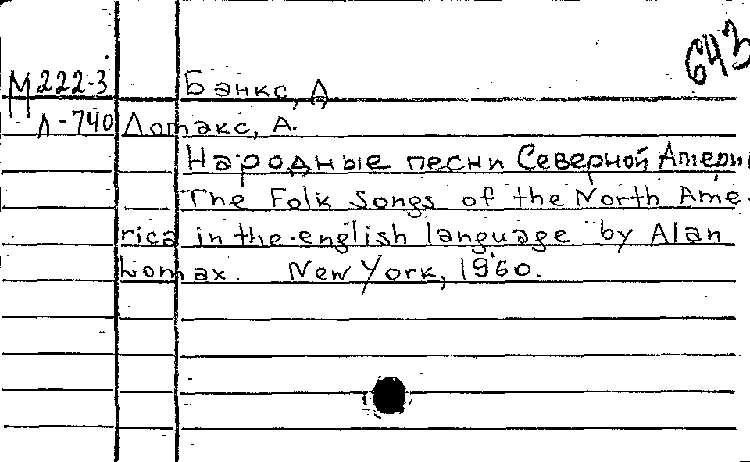 643
М 222-3 Банкс, А
Л-740 Ломакс, А.
Народные песни Северной Амери
The Folk Songs of the North Ame-
rica in the english language by Alan
Lomax. New York, 1960.